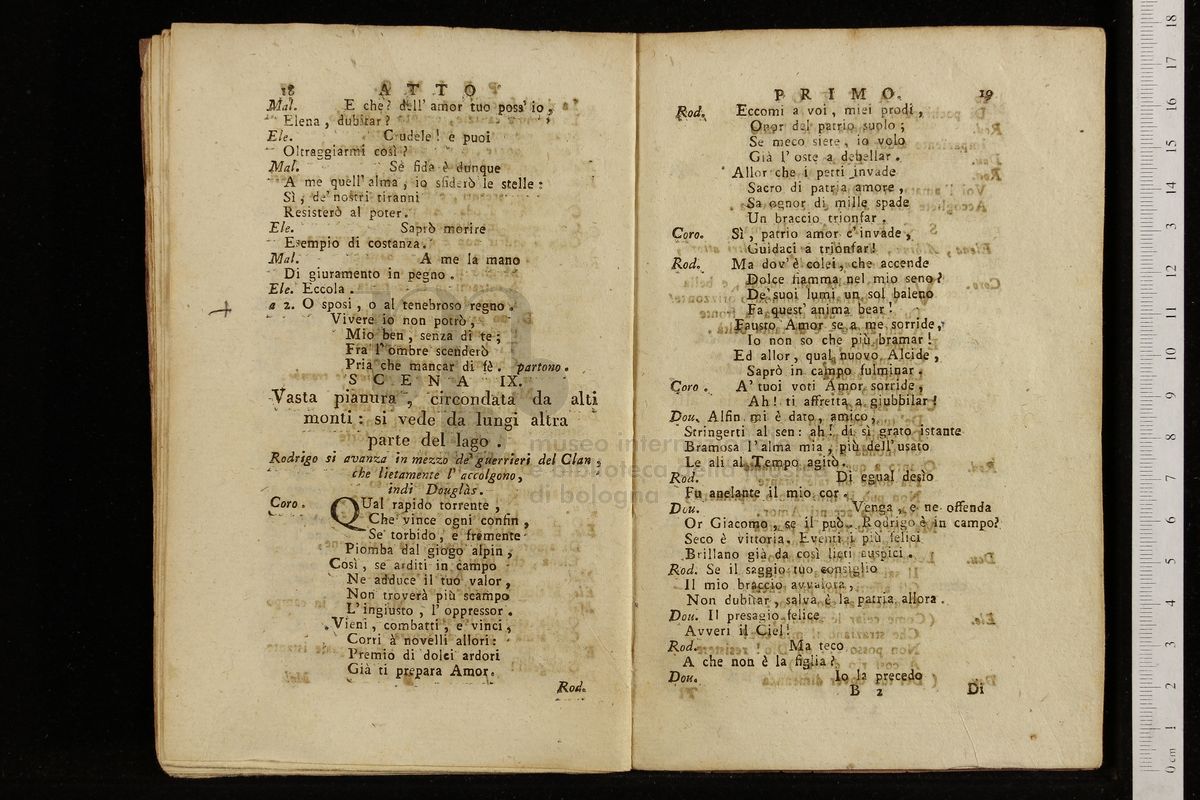 18 ATTO
Mal. E che? dell' amor tuo poss' io,
Elena, dubitar?
Ele. Crudele! e puoi
Oltraggiarmi così?
Mal. Sè fida è dunque
A me quell' alma, io sfiderò le stelle:
Sì, de' nostri tiranni
Resisterò al poter.
Ele. Saprò morire
Esempio di costanza.
Mal. A me la mano
Di giuramento in pegno.
Ele. Eccola.
a 2. O sposi, o al tenebroso regno.
Vivere io non potrò,
Mio ben, senza di te;
Fra l' ombre scenderò
Pria che mancar di fè. partono.
SCENA IX.
Vasta pianura, circondata da alti
monti: si vede da lungi altra
parte del lago.
Rodrigo si avanza in mezzo de' guerrieri del Clan,
che lietamente l' accolgono,
indi Douglàs.
Coro. QUal rapido torrente,
Che vince ogni confin,
Se torbido, e fremente
Piomba dal giogo alpin,
Così, se arditi in campo
Ne adduce il tuo valor,
Non troverà più scampo
L' ingiusto, l' oppressor.
Vieni, combatti, e vinci,
Corri à novelli allori:
Premio di dolci ardori
Già ti prepara Amor.
Rod.
PRIMO. 19
Rod. Eccomi a voi, miei prodi,
Onor del patrio suolo;
Se meco siete, io volo
Già l' oste a debellar.
Allor che i petti invade
Sacro di patria amore,
Sa ognor di mille spade
Un braccio trionfar.
Coro. Sì, patrio amor c' invade,
Guidaci a trionfar!
Rod. Ma dov' è colei, che accende
Dolce fiamma nel mio seno?
De' suoi lumi un sol baleno
Fa quest' anima bear!
Fausto Amor se a me sorride,
Io non so che più bramar!
Ed allor, qual nuovo Alcide,
Saprò in campo fulminar.
Coro. A' tuoi voti Amor sorride,
Ah! ti affretta a giubbilar!
Dou. Alfin mi è dato, amico,
Stringerti al sen: ah! di sì grato istante
Bramosa l' alma mia, più dell' usato
Le ali al Tempo agitò.
Rod. Di egual desìo
Fu anelante il mio cor.
Dou. Venga, e ne offenda
Or Giacomo, se il può. Rodrigo è in campo?
Seco è vittoria. Eventi i più felici
Brillano già da così lieti auspici.
Rod. Se il saggio tuo consiglio
Il mio braccio avvalora,
Non dubitar, salva è la patria allora.
Dou. Il presagio felice
Avveri il Ciel!
Rod. Ma teco
A che non è la figlia?
Dou. Io la precedo
B 2 Di